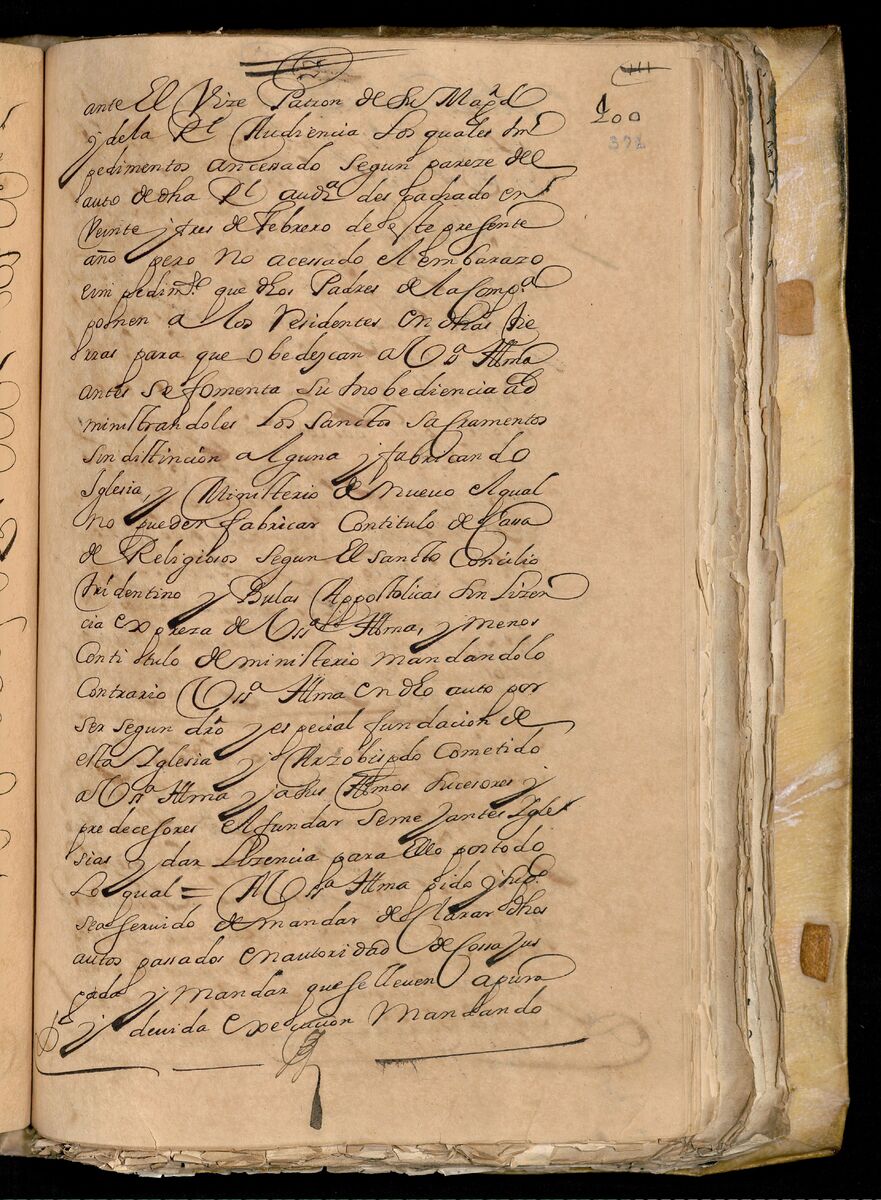 100
372
ante El Vize Patron de Su Magd
y de la Rl Audiencia Los quales im
pedimentos an cessado segun pareze del
auto de dha Rl audia despachado en
Veinte y tres de Febrero de este presente
año pero no a cessado el embarazo
e impedimto que dhos Padres de la Compa
ponen a los Residentes en dhas tie
rras para que obedescan a Vssa Illma
antes se fomenta su inobediencia ad
ministrandoles los sanctos sacramentos
sin distincion alguna y fabricando
Iglesia, y Ministerio de nuevo el qual
no pueden fabricar con titulo de Casa
de Religiosos segun El sancto Concilio
tridentino y Bulas Appostolicas sin Lizen
cia expreza de Vssa Illma, y menos
con titulo de ministerio mandandolo
Contrario Vssa Illma en dho auto por
ser segun dro y especial fundacion de
esta Iglesia y Arzobispado Cometido
a Vssa Illma y a sus Illmos sucesores y
predecesores el fundar semejantes Igle
sias y dar Lizencia para ello por todo
Lo qual = A Vssa Illma pido y supco
sea servido de mandar declarar dhos
autos passados en autoridad de cossa jus
gada y mandar que se lleven a pura
y devida execucion Mandando